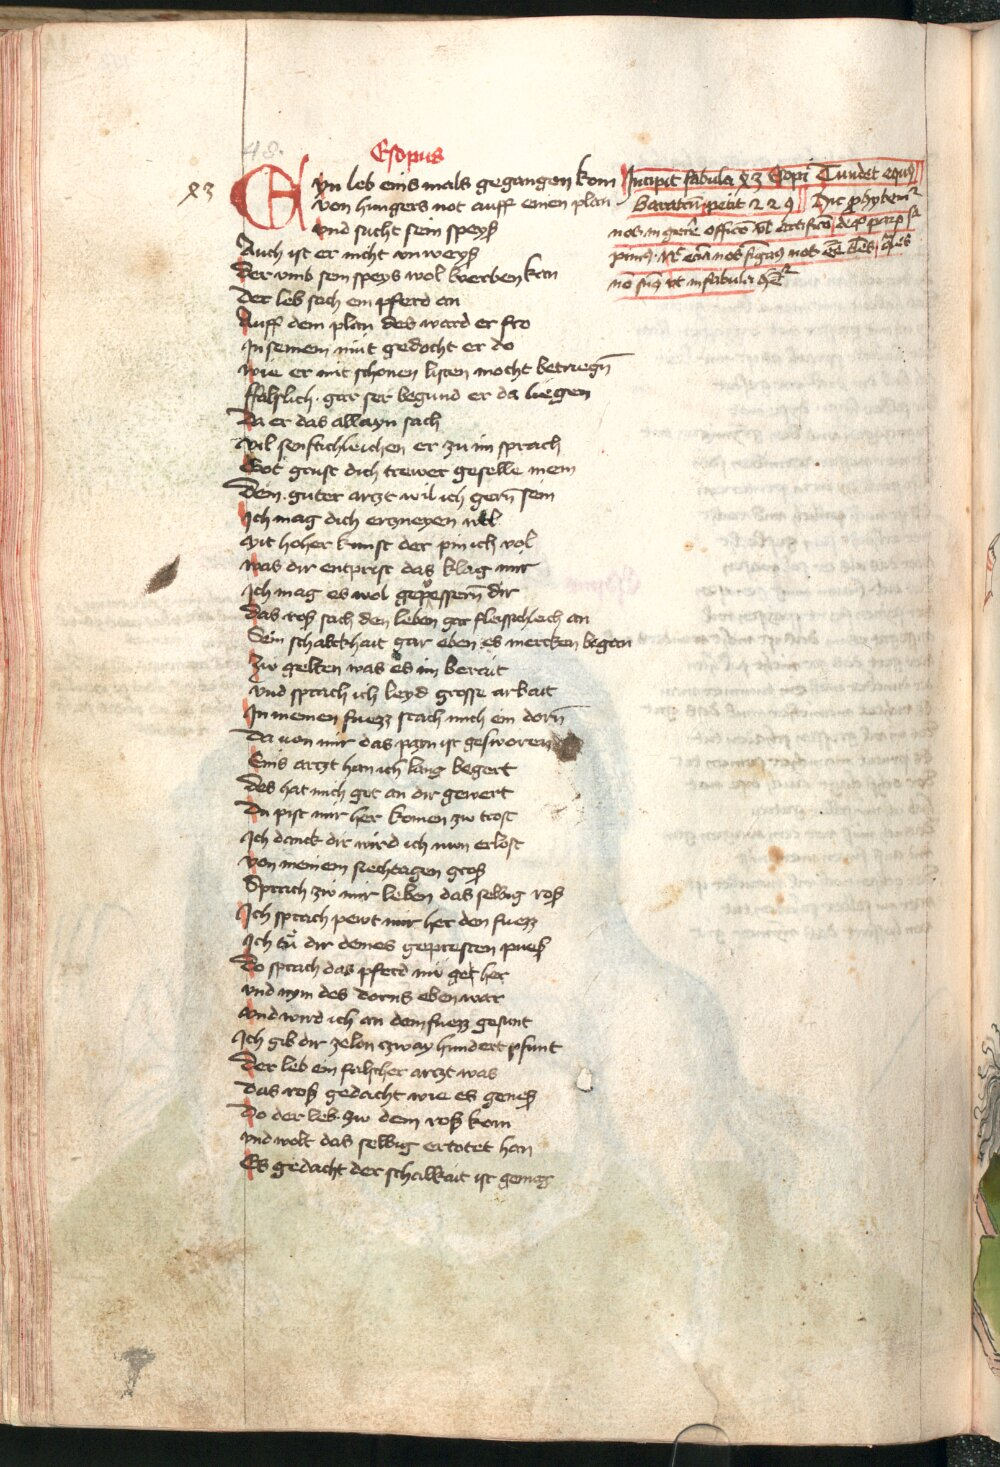 48.
Esopus
x3
Eyn leb eins mals gegangen kom
von hungers not auff einen plan
vnd sucht sein speyß
Auch ist er nicht vnweyß
Der vmb sein speys wol werben kan
Der leb sach ein pferd an
Auff dem plan des ward er fro
In seinem mut gedocht er do
wie er mit schonen listen mocht betriegn̄
ffalslich gar ser begund er da liegen
Da er das allayn sach
vil senftichleichen er zu im sprach
Got grust dich trewer geselle mein
Dein guter arczt wil ich gern̄ sein
Ich mag dich erczneyen wol
Mit hoher kunst der pin ich vol
was dir entprist das klag mir
Ich mag es wol gepessern̄ dir
Das roß sach den leben gar fleissichleich an
Sein schalckhait gar eben es mercken began
Zw gelten was es im berait
vnd sprach ich leyd grosse arbait
In meinen fuezz stach mich ein dorn̄
Da von mir das payn ist gesworen
Eins arczt han ich lang begert
Des hat mich got an dir gewert
Du pist mir her komen zw trost
Ich danck dir wird ich nun erlost
von meinem siechtagen groß
Sprach zw mir leben das selbig roß
Ich sprach pewt mir her den fuezz
Ich tu dir deines gepresten pueß
Do sprach das pferd nu get her
vnd nym des dorns eben war
vnd wird ich an dem fuezz gesunt
Ich gib dir zelon czway hundert pfunt
Der leb ein falscher arczt was
Das roß gedacht wie es geneß
Do der leb zw dem roß kom
vnd wolt das selbig ertotet han
Es gedacht der schalkait ist genug
Incipit fabula x3 Esopi Tundet equus
petit
nos
in fabula